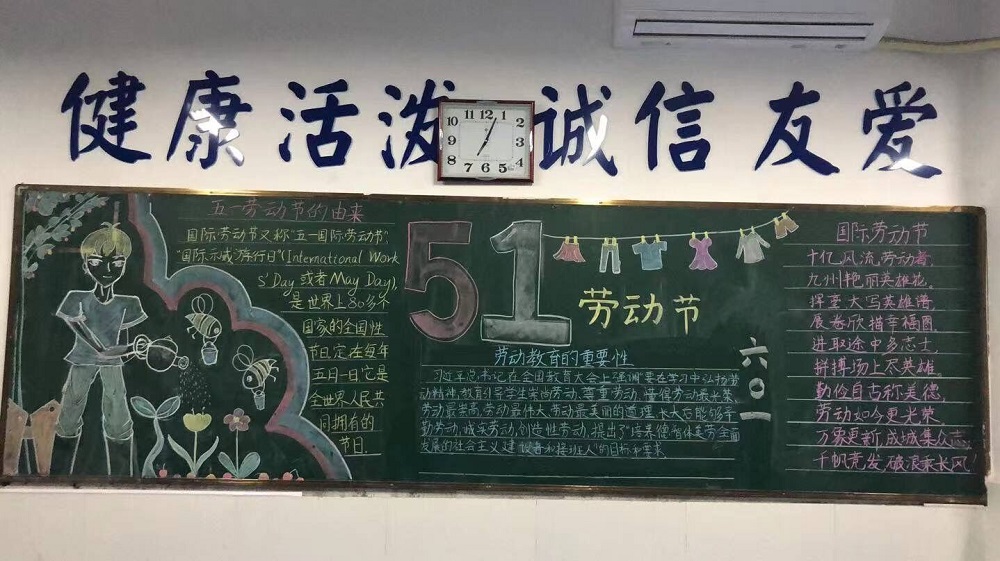 健康活泼 诚信友爱
11 12 1
10 2
9 3
8 4
7 6 5
五一劳动节的由来
国际劳动节又称"五一国际劳动节"
"国际示威游行日"(International Work
s' Day 或者May Day),
是世界上80多个
国家的全国性
节日,定在每年
五月一日.它是
全世界人民共
同拥有的
节日.
51
劳动节
劳动教育的重要性
习近平总书记在全国教育大会上强调要在学习中弘扬劳
动精神,教育引导学生崇尚劳动、尊重劳动,懂得劳动最光荣、
劳动最崇高、劳动最伟大、劳动最美丽的道理,长大后能够辛
勤劳动、诚实劳动、创造性劳动,提出了"培养德智体美劳全面
发展的社会主义建设者和接班人"的目标和要求
六〇一
国际劳动节
十亿风流劳动者,
九州艳丽英雄花。
挥毫大写英雄谱,
展卷欣描幸福图.
进取途中多志士,
拼搏场上尽英雄.
勤俭自古称美德,
劳动如今更光荣.
万众更新,成城集众志,
千帆竞发,破浪乘长风!